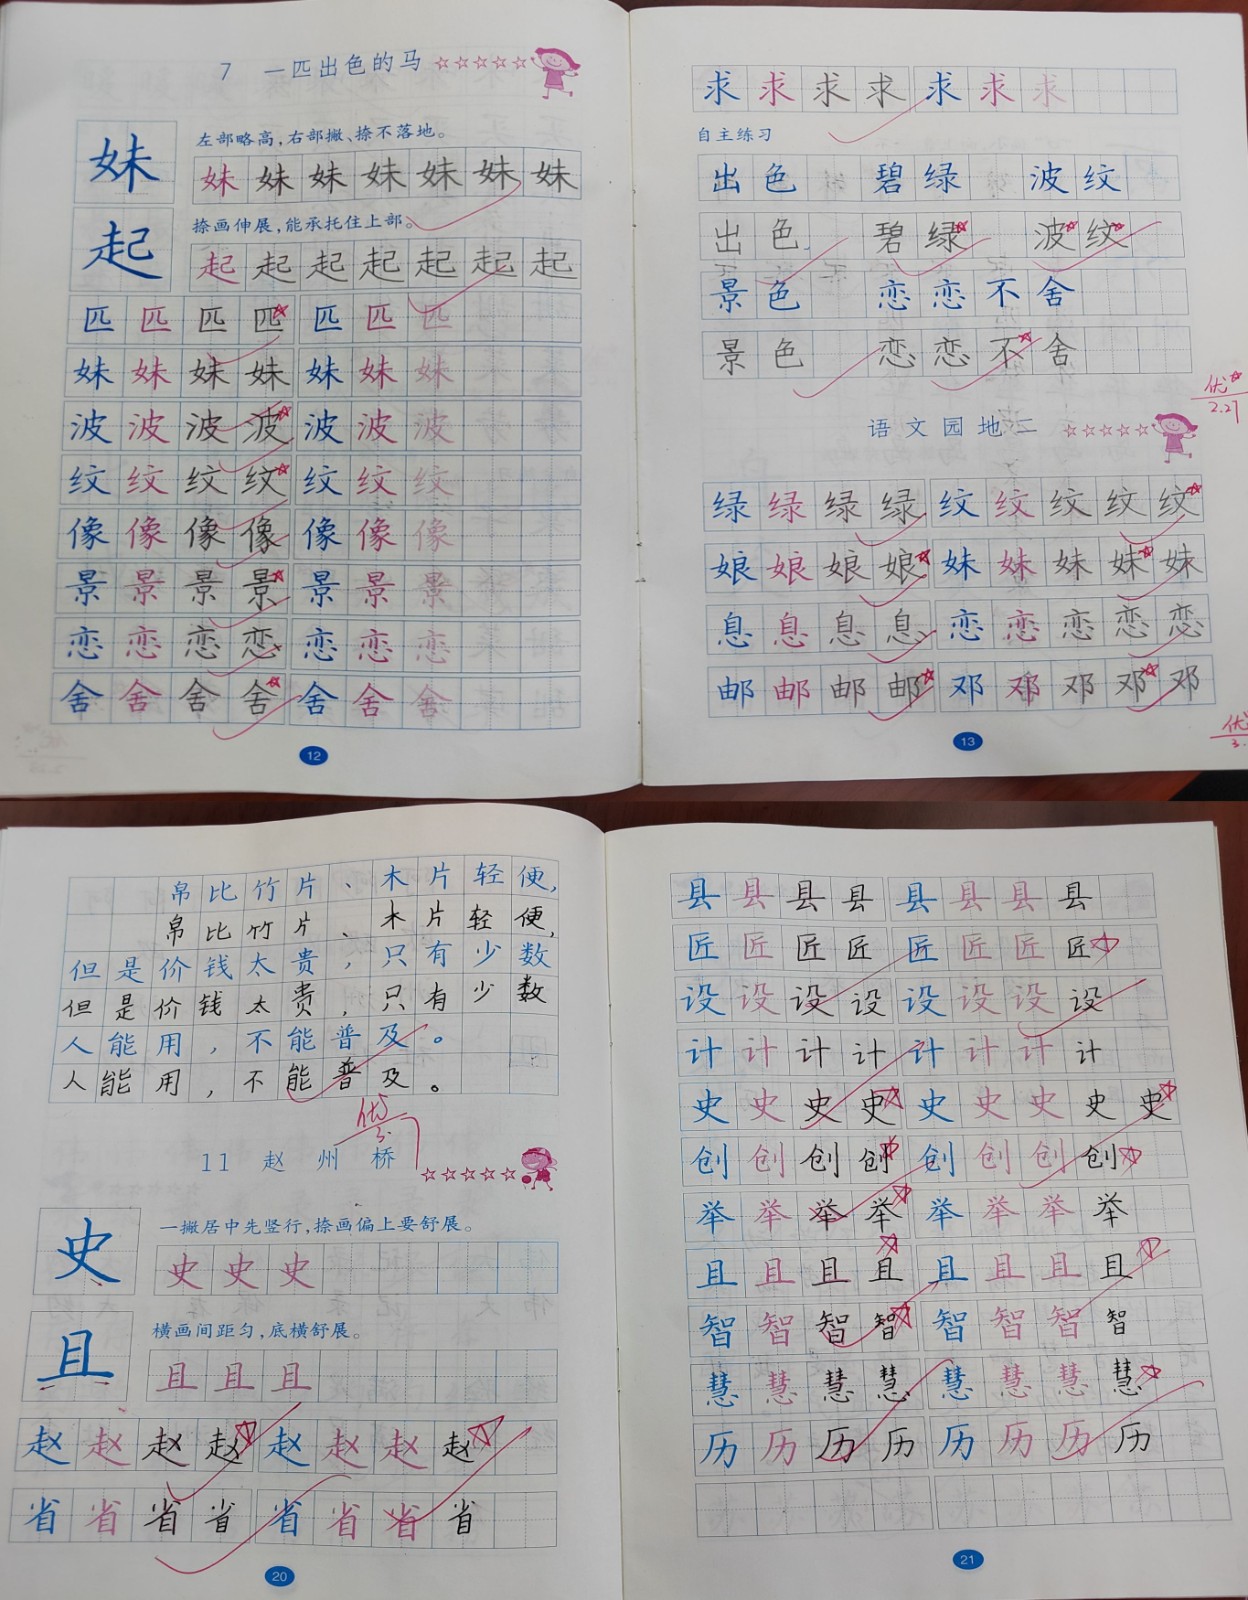 7 一匹出色的马 ☆☆☆☆☆
妹
左部略高，右部撇、捺不落地。
妹妹妹妹妹妹妹
起
捺画伸展，能承托住上部。
起起起起起起起
匹匹匹匹匹匹匹
妹妹妹妹妹妹妹
波波波波波波波
纹纹纹纹纹纹纹
像像像像像像像
景景景景景景景
恋恋恋恋恋恋恋
舍舍舍舍舍舍舍
12
求求求求求求求
自主练习
出色 碧绿 波纹
出色 碧绿 波纹
景色 恋恋不舍
景色 恋恋不舍
优
2.21
语文园地二 ☆☆☆☆☆
绿绿绿绿纹纹纹纹纹
娘娘娘娘妹妹妹妹妹
息息息息恋恋恋恋恋
邮邮邮邮邓邓邓邓邓
优
3.
13
帛比竹片、木片轻便，
帛比竹片、木片轻便，
但是价钱太贵，只有少数
但是价钱太贵，只有少数
人能用，不能普及。
人能用，不能普及。
优
3.
11 赵州桥 ☆☆☆☆☆
史
一撇居中先竖行，捺画偏上要舒展。
史史史
且
横画间距匀，底横舒展。
且且且
赵赵赵赵赵赵赵赵
省省省省省省省省
20
县县县县县县县县
匠匠匠匠匠匠匠匠
设设设设设设设设
计计计计计计计计
史史史史史史史史史
创创创创创创创创
举举举举举举举举
且且且且且且且且
智智智智智智智智
慧慧慧慧慧慧慧慧
历历历历历历历历
21